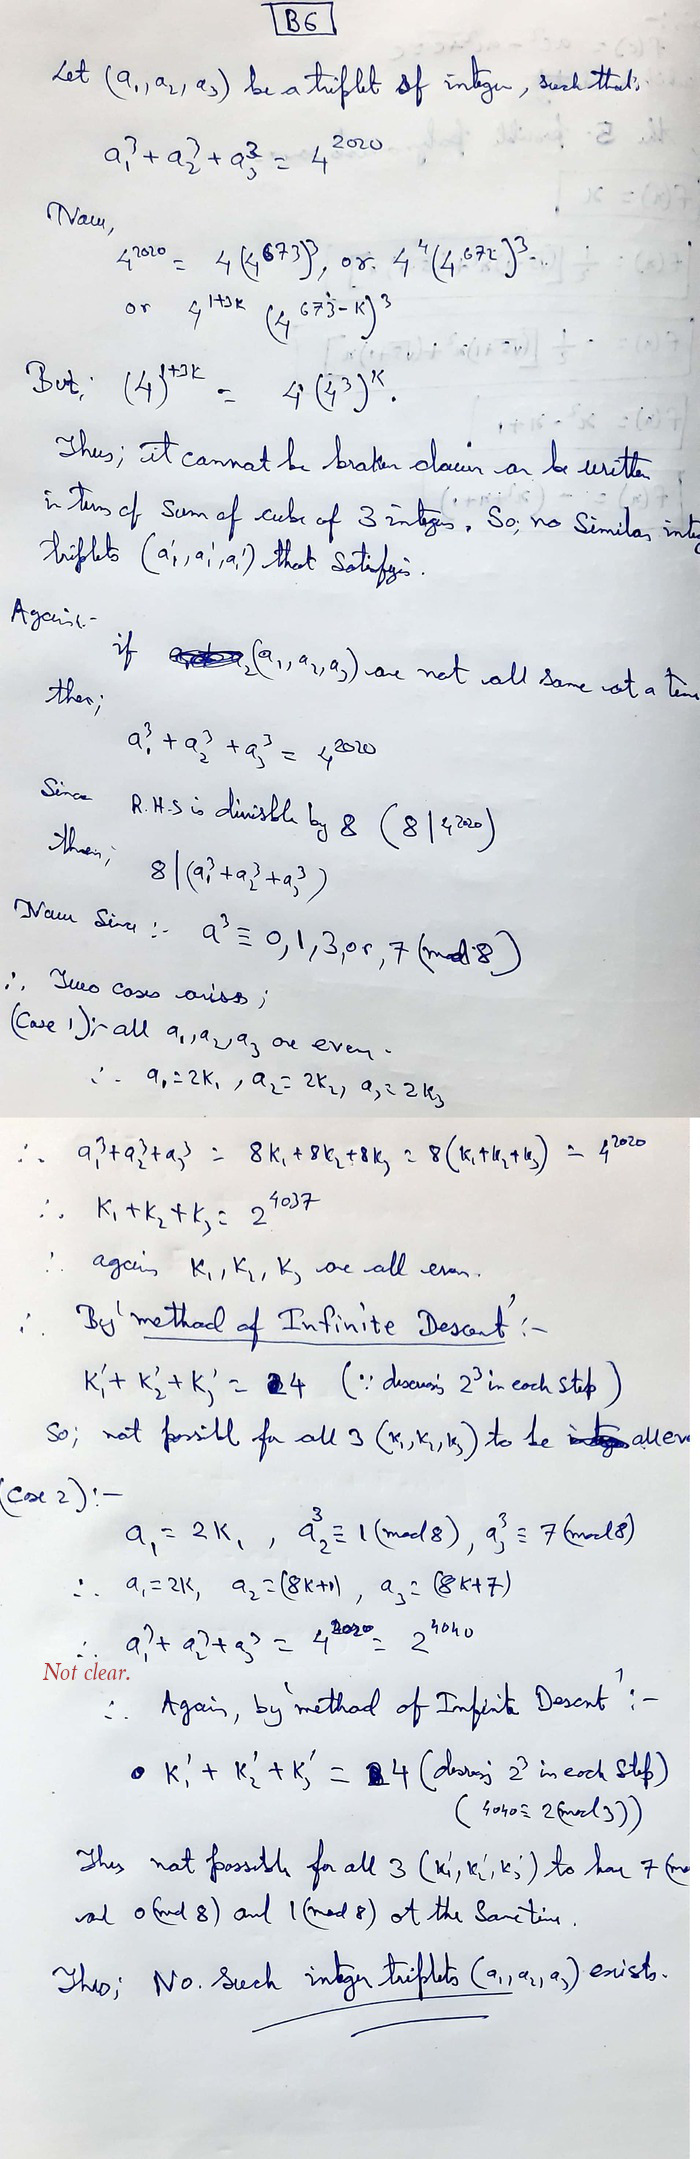 B6
Let (a₁, a₂, a₃) be a triplet of integer, such that:
a₁³ + a₂³ + a₃³ = 4²⁰²⁰
Now,
4²⁰²⁰ = 4(4⁶⁷³)³, or 4⁴(4⁶⁷²)³ ...
or 4^(1+3K) (4^(673-K))³
But; (4)^(1+3K) = 4(4³)^K.
Thus; it cannot be broken down or be written
in term of sum of cube of 3 integers. So; no similar integ
triplets (a'₁, a'₁, a'₁) that satisfyis.
Again:-
if (a₁, a₂, a₃) are not all same at a time
then;
a₁³ + a₂³ + a₃³ = 4²⁰²⁰
Since R.H.S is divisible by 8 (8 | 4²⁰²⁰)
then;
8 | (a₁³ + a₂³ + a₃³)
Now Since :- a³ ≡ 0, 1, 3, or, 7 (mod 8)
∴ Two cases arises;
(Case 1):- all a₁, a₂, a₃ are even.
∴ a₁ = 2K₁, a₂ = 2K₂, a₃ = 2K₃
∴ a₁³ + a₂³ + a₃³ = 8K₁ + 8K₂ + 8K₃ = 8(K₁ + K₂ + K₃) = 4²⁰²⁰
∴ K₁ + K₂ + K₃ = 2⁴⁰³⁷
∴ again K₁, K₂, K₃ are all even.
∴ By 'method of Infinite Descent' :-
K₁' + K₂' + K₃' = 4 (∵ 2³ in each step)
So; not possibl for all 3 (K₁, K₂, K₃) to be all eve
(Case 2) :-
a₁ = 2K₁, a₂³ ≡ 1 (mod 8), a₃³ ≡ 7 (mod 8)
∴ a₁ = 2K, a₂ = (8K+1), a₃ = (8K+7)
∴ a₁³ + a₂³ + a₃³ = 4²⁰²⁰ = 2⁴⁰⁴⁰
Not clear.
∴ Again, by 'method of Infinite Descent' :-
K₁' + K₂' + K₃' = 4 ( 2³ in each step)
(4040 ≡ 2 (mod 3))
Thus not possible for all 3 (K₁', K₂', K₃') to have 7 (mo
and 0 (mod 8) and 1 (mod 8) at the same time.
Thus; No. such integer triplets (a₁, a₂, a₃) exists.